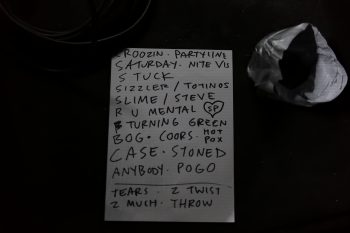 ROOZIN · PARTYLINE
SATURDAY · NITE VIS
STUCK
SIZZLER / TOTINOS
SLIME / STEVE
R U MENTAL SP
TURNING GREEN
BOG · COORS · HOT POX
CASE · STONED
ANYBODY · POGO
TEARS · 2 TWIST
2 MUCH · THROW